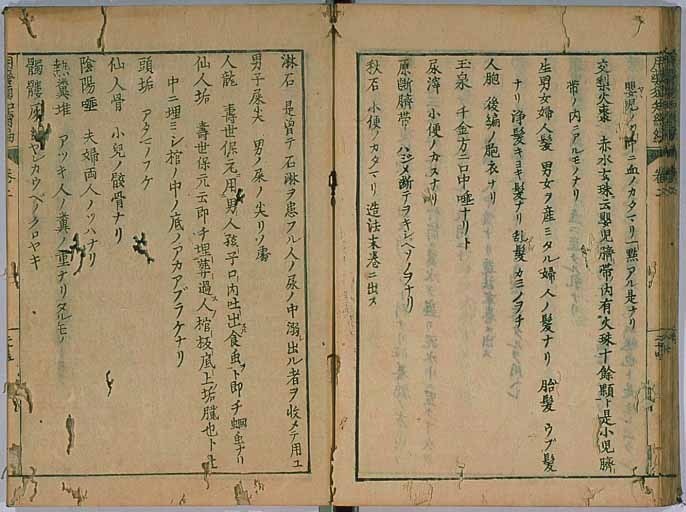 嬰児ノ中ニ血ノカタマリ一點アル是ナリ
交梨火棗 赤水玄珠云嬰児臍帯内有火珠十餘顆ト是小児臍
帯ノ内ニアルモノナリ
生男女婦人髮 男女ヲ産ミタル婦人ノ髮ナリ 胎髮 ウブ髮
ナリ 浄髮キヨキ髮ナリ 乱髮 カミノヲチ
人胞 後編ノ胞衣ナリ
玉泉 千金方ニ口中唾ナリト
尿滓 小便ノカスナリ
原断臍帯 ハジメ断テヲキシヘソノヲナリ
秋石 小便ノカタマリ 造法末巻ニ出ス
淋石 是曽テ石淋ヲ患フル人ノ尿ノ中溺出ル者ヲ收メテ用ユ
男子屎尖 男ノ屎ノ尖リソ
人龍 壽世保元ニ用男人孩子口内吐出食虫ヲト即チ蛔虫ナリ
仙人垢 壽世保元云即チ埋葬過人ノ棺板底上垢膩也ト土
中ニ埋ミシ棺ノ中ノ底ノアカアブラケナリ
頭垢 アタマノフケ
仙人骨 小児ノ骸骨ナリ
陰陽唾 夫婦両人ノツハナリ
熱糞堆 アツキ人ノ糞ノ重ナリタルモノ
髑髏灰 ヤシカウベノクロヤキ